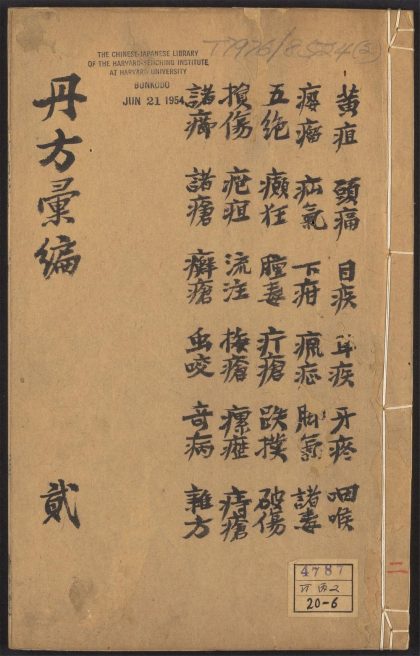 THE CHINESE-JAPANESE LIBRARY
OF THE HARVARD-YENCHING INSTITUTE
AT HARVARD UNIVERSITY
BUNKUDO
JUN 21 1954
T7976/8554(2)
黃疸 頭痛 目疾 耳疾 牙疼 咽喉
癭瘤 疝氣 下疳 瘋症 脚氣 諸毒
五绝 癲狂 腫毒 疔瘡 跌撲 破傷
損傷 疤疽 流注 瘡 瘰癧 痔瘡
諸痹 諸瘡 癬瘡 虫咬 奇病 雜方
丹方彙編 貳
4787
20-6
二